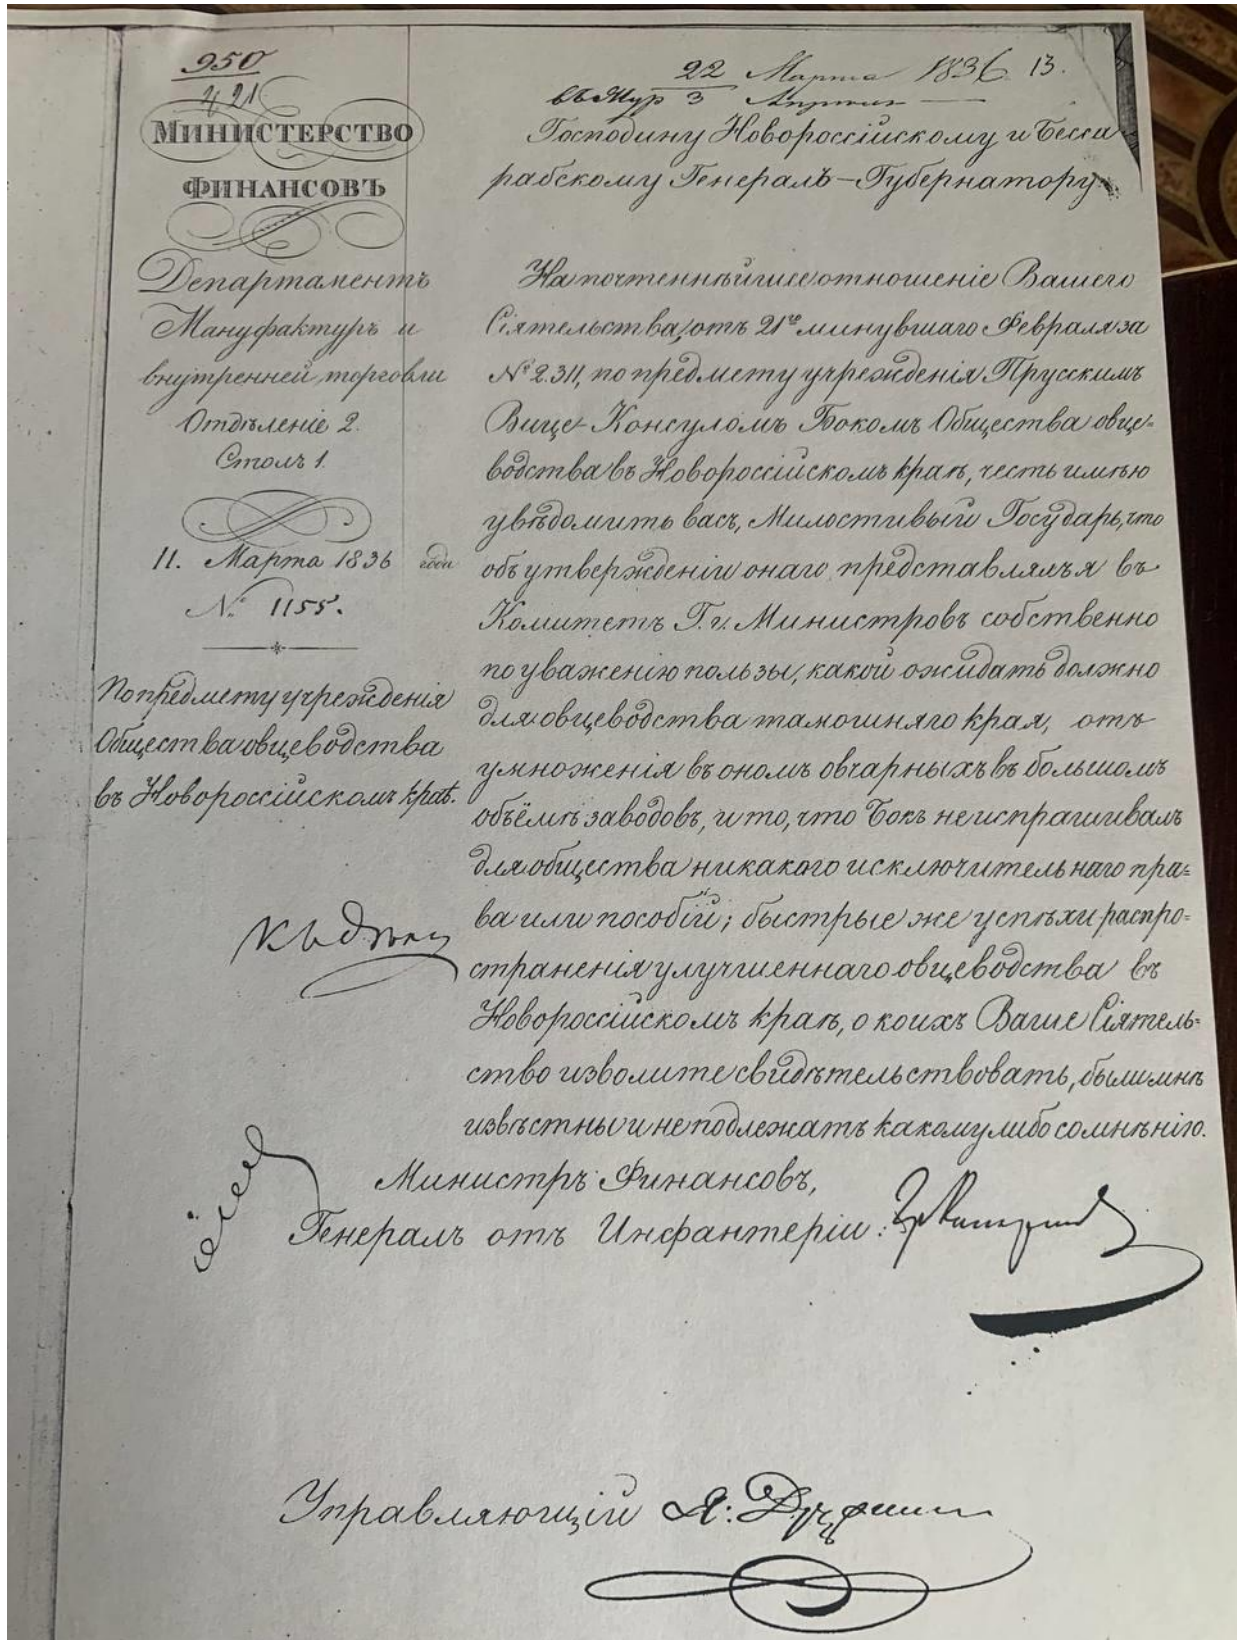 950
421
МИНИСТЕРСТВО
ФИНАНСОВЪ
Департаментъ
Мануфактуръ и
внутренней торговли
Отдѣленіе 2.
Столъ 1.
11. Марта 1836 года
№ 1155.
По предмету учрежденія
Общества овцеводства
въ Новороссійскомъ краѣ.
22 Марта 1836 13.
3 Апреля
Господину Новороссійскому и Бесса
рабскому Генералъ-Губернатору
На почтеннѣйшее отношеніе Вашего
Сіятельства, отъ 21го минувшаго Февраля за
№ 2.311, по предмету учрежденія Прусскимъ
Вице-Консуломъ Бокомъ Общества овце-
водства въ Новороссійскомъ краѣ, честь имѣю
увѣдомить васъ, Милостивый Государь, что
объ утвержденіи онаго представлялъ я въ
Комитетъ Г.г. Министровъ собственно
по уваженію пользы, какой ожидать должно
для овцеводства тамошняго края, отъ
умноженія въ ономъ овчарныхъ въ большомъ
объёмѣ заводовъ, и то, что Бокъ не испрашивалъ
для общества никакого исключительнаго пра-
ва или пособій; быстрые же успѣхи распро-
страненія улучшеннаго овцеводства въ
Новороссійскомъ краѣ, о коихъ Ваше Сіятель-
ство изволите свидѣтельствовать, были мнѣ
извѣстны и не подлежатъ какому либо сомнѣнію.
Министръ Финансовъ,
Генералъ отъ Инфантеріи:
Управляющій Я: